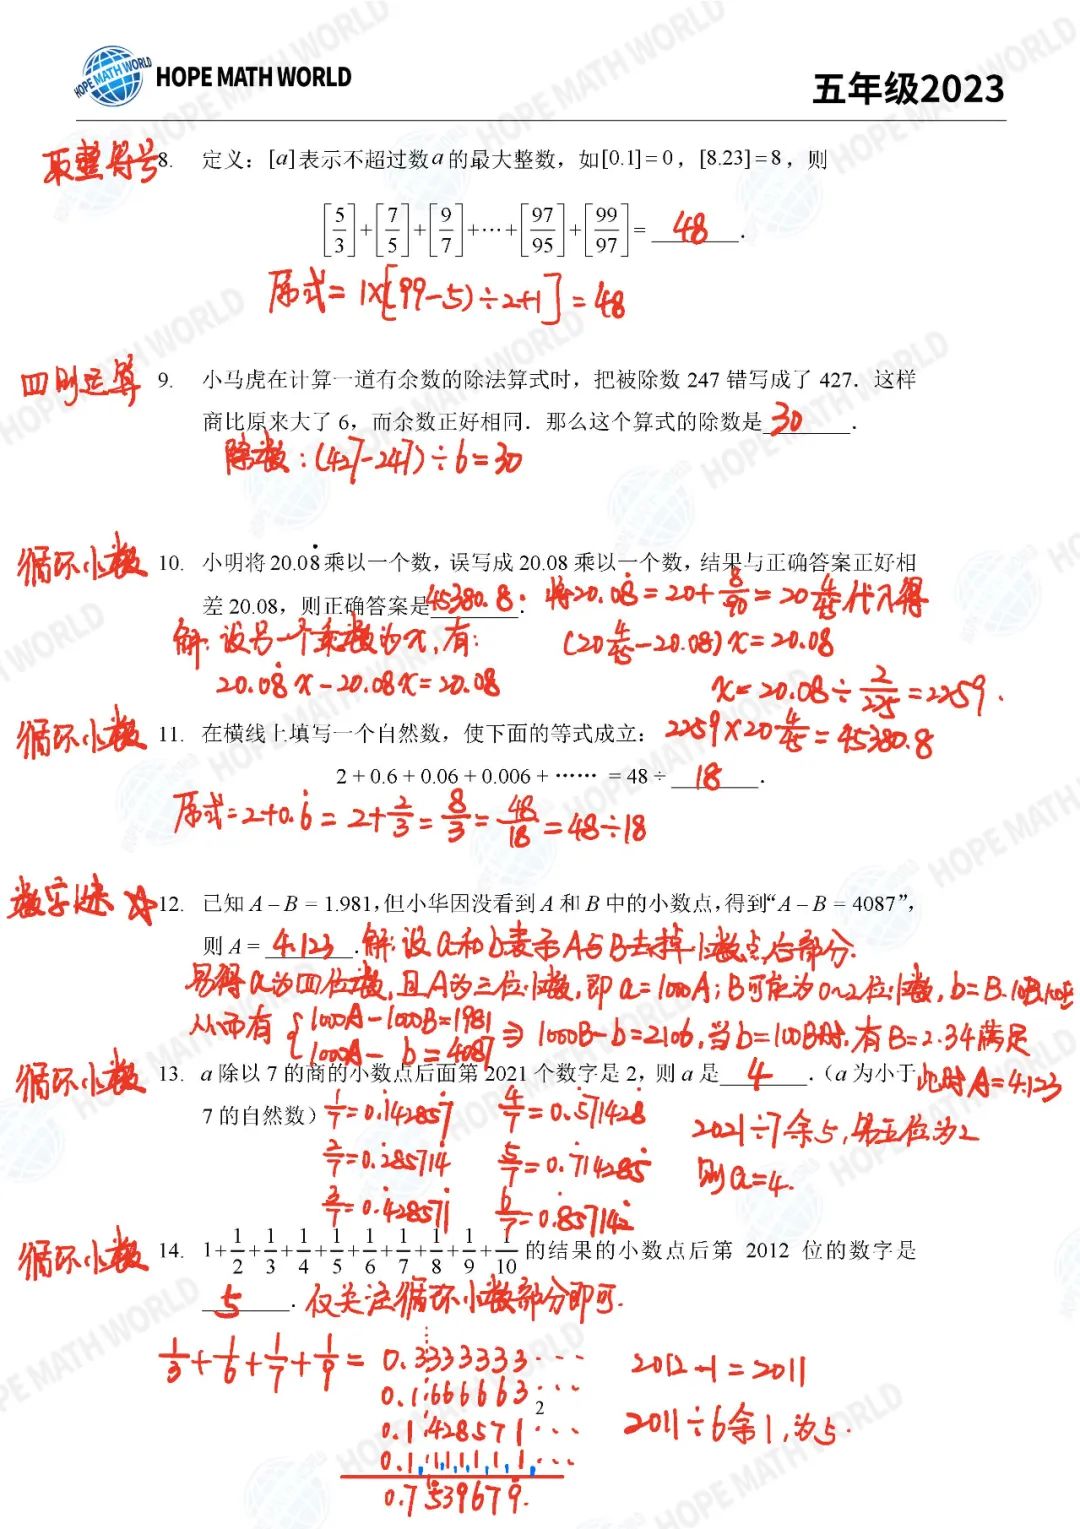 HOPE MATH WORLD
五年级2023
取整符号
8. 定义：[a]表示不超过数a的最大整数，如[0.1]=0，[8.23]=8，则
[5/3]+[7/5]+[9/7]+…+[97/95]+[99/97]= 48 .
原式=1×[(99-5)÷2+1]=48
四则运算
9. 小马虎在计算一道有余数的除法算式时，把被除数 247 错写成了 427．这样
商比原来大了 6，而余数正好相同．那么这个算式的除数是 30 .
除数：(427-247)÷6=30
循环小数
10. 小明将20.08̇乘以一个数，误写成 20.08 乘以一个数，结果与正确答案正好相
差 20.08，则正确答案是 45380.8 . 将20.08̇=20+8/90=20 4/45代入得
解：设另一个乘数为x，有：
(20 4/45-20.08)x=20.08
20.08̇x-20.08x=20.08
x=20.08÷2/225=2259.
循环小数
11. 在横线上填写一个自然数，使下面的等式成立：
2259×20 4/45=45380.8
2+0.6+0.06+0.006+…… =48÷ 18 .
原式=2+0.6̇=2+2/3=8/3=48/18=48÷18
数字谜 ☆
12. 已知 A−B=1.981,但小华因没看到 A 和 B 中的小数点,得到“A−B=4087”，
则 A= 4.123 . 解：设a和b表示A与B去掉小数点后部分.
易得a为四位数，且A为三位小数，即a=1000A；B可能为0~2位小数，b=B.10B.100B
从而有 {1000A-1000B=1981
1000A- b=4087 ⇒ 1000B-b=2106，当b=100B时，有B=2.34满足
此时A=4.123
循环小数
13. a 除以 7 的商的小数点后面第 2021 个数字是 2，则 a 是 4 .（a 为小于
7 的自然数）
1/7=0.1̇42857̇ 4/7=0.5̇71428̇
2021÷7余5，第五位为2
2/7=0.2̇85714̇ 5/7=0.7̇14285̇
则a=4.
3/7=0.4̇28571̇ 6/7=0.8̇57142̇
循环小数
14. 1+1/2+1/3+1/4+1/5+1/6+1/7+1/8+1/9+1/10 的结果的小数点后第 2012 位的数字是
5 . 仅关注循环小数部分即可.
1/3+1/6+1/7+1/9= 0.3333333····
2012-1=2011
0.1666663···
2
0.1428571···
2011÷6余1，为5.
0.1111111···
0.7539679.